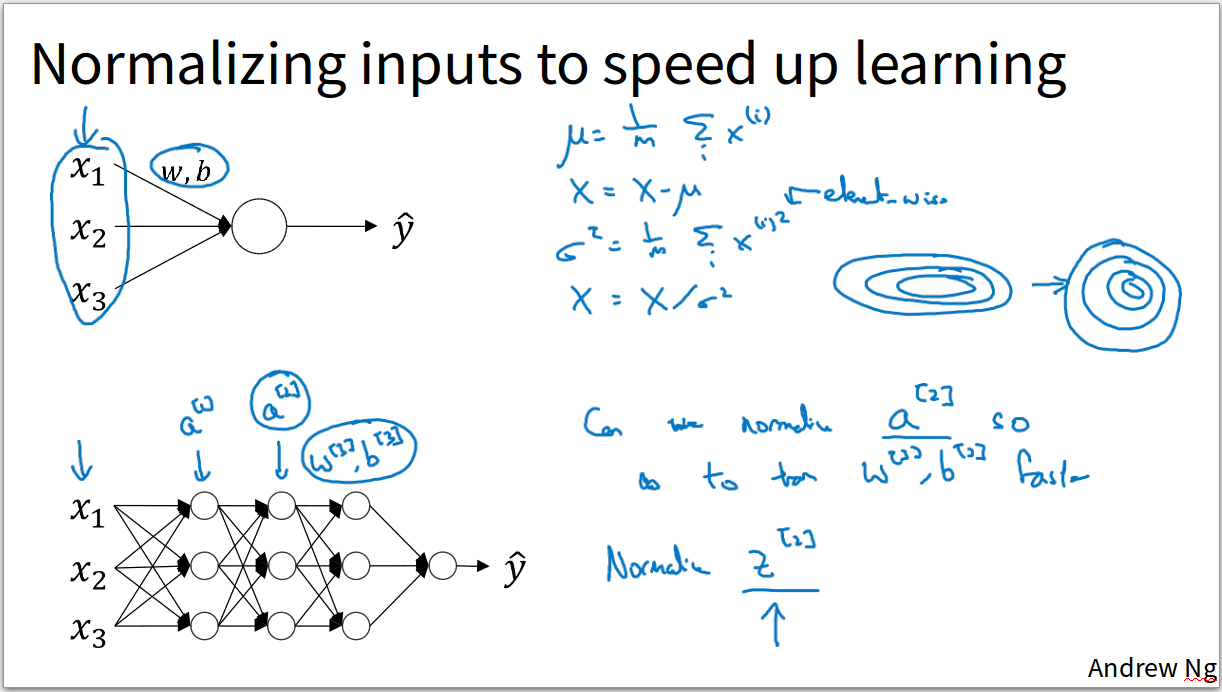 Normalizing inputs to speed up learning
x₁
w, b
x₂
ŷ
x₃
μ = 1/m Σᵢ x⁽ⁱ⁾
X = X - μ
σ² = 1/m Σᵢ x⁽ⁱ⁾² ← element-wise
X = X/σ²
a^[1] a^[2]
w^[3], b^[3]
x₁
x₂
ŷ
x₃
Can we normalize a^[2] so
as to train w^[3], b^[3] faster
Normalize z^[2]
Andrew Ng